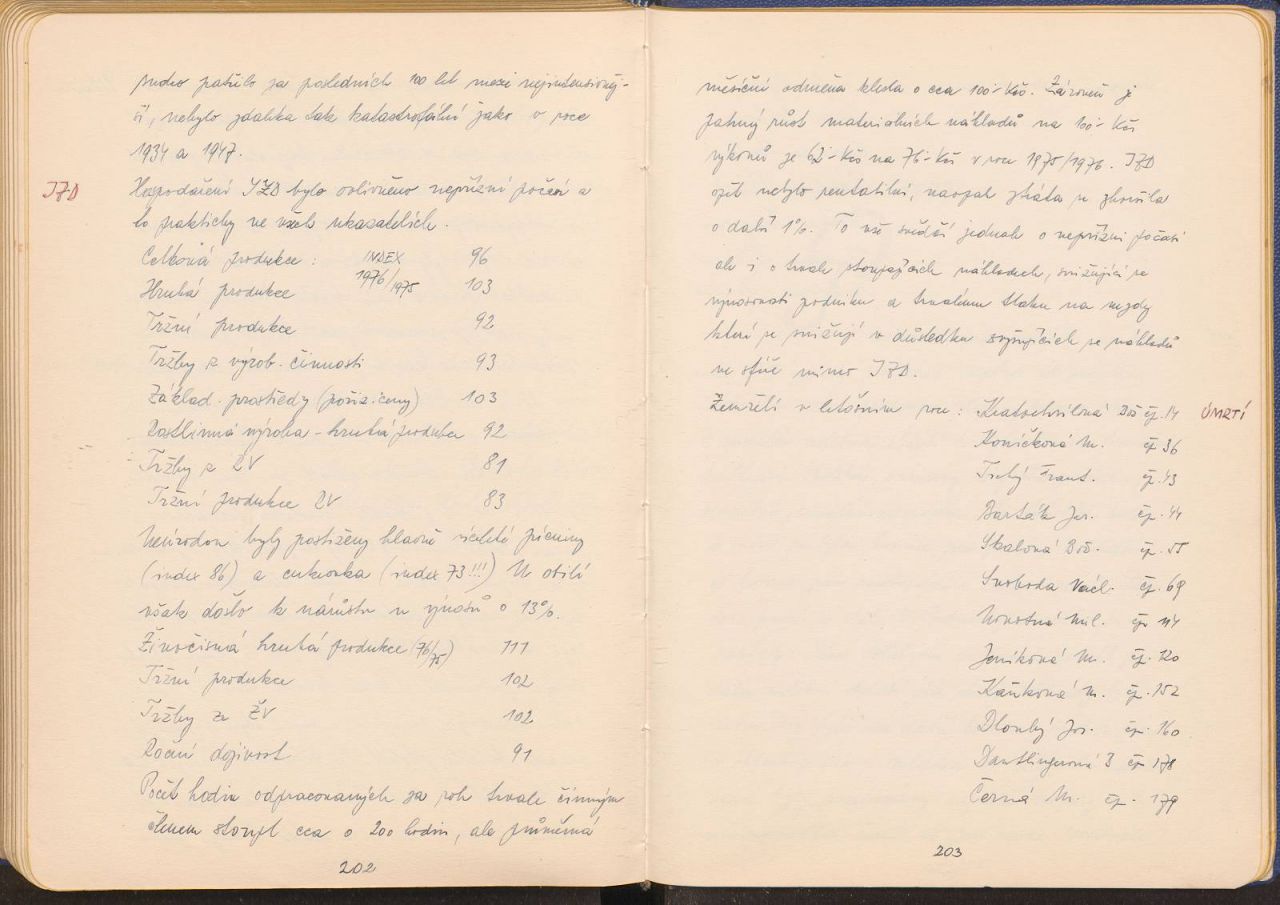 sucho patřilo za posledních 100 let mezi nejintensivněj-
ší, nebylo zdaleka tak katastrofální jako v roce
1934 a 1947.
JZD
Hospodaření JZD bylo ovlivněno nepřízní počasí a
to prakticky ve všech ukazatelích.
Celková produkce : INDEX 1976/1975 96
Hrubá produkce 103
Tržní produkce 92
Tržby z výrob. činnosti 93
Základ. prostředy (poříz. ceny) 103
Rostlinná výroba - hrubá produkce 92
Tržby z RV 81
Tržní produkce RV 83
Neúrodou byly postiženy hlavně víceleté pícniny
(index 86) a cukrovka (index 73!!!) U obilí
však došlo k nárůstu u výnosů o 13%.
Živočišná hrubá produkce (76/75) 111
Tržní produkce 102
Tržby za ŽV 102
Roční dojivost 91
Počet hodin odpracovaných za rok trvale činným
členem stoupl cca o 200 hodin, ale průměrná
202
měsíční odměna klesla o cca 100- Kčs. Zároveň je
patrný růst materiálních nákladů na 100- Kčs
výkonů ze 62- Kčs na 76- Kčs v roce 1975/1976. JZD
opět nebylo rentabilní, naopak ztráta se zhoršila
o další 1%. To vše svědčí jednak o nepřízni počasí
ale i o trvale stoupajících nákladech, snižující se
výnosnosti podniku a trvalému tlaku na mzdy
které se snižují v důsledku zvyšujících se nákladů
ve sféře mimo JZD.
Zemřelí v letošním roce : Kratochvílová Bož čp. 14 ÚMRTÍ
Koníčková M. čp 36
Frant. čp. 43
Barták Jos. čp. 44
Skalová Bož. čp. 55
Svoboda Václ. čp. 69
Novotná Mil. čp 114
Jeníková M. čp. 120
Kaňková M. čp. 152
Dlouhý Jos. čp. 160
Dantlingerová B čp 178
Černá M. čp. 179
203